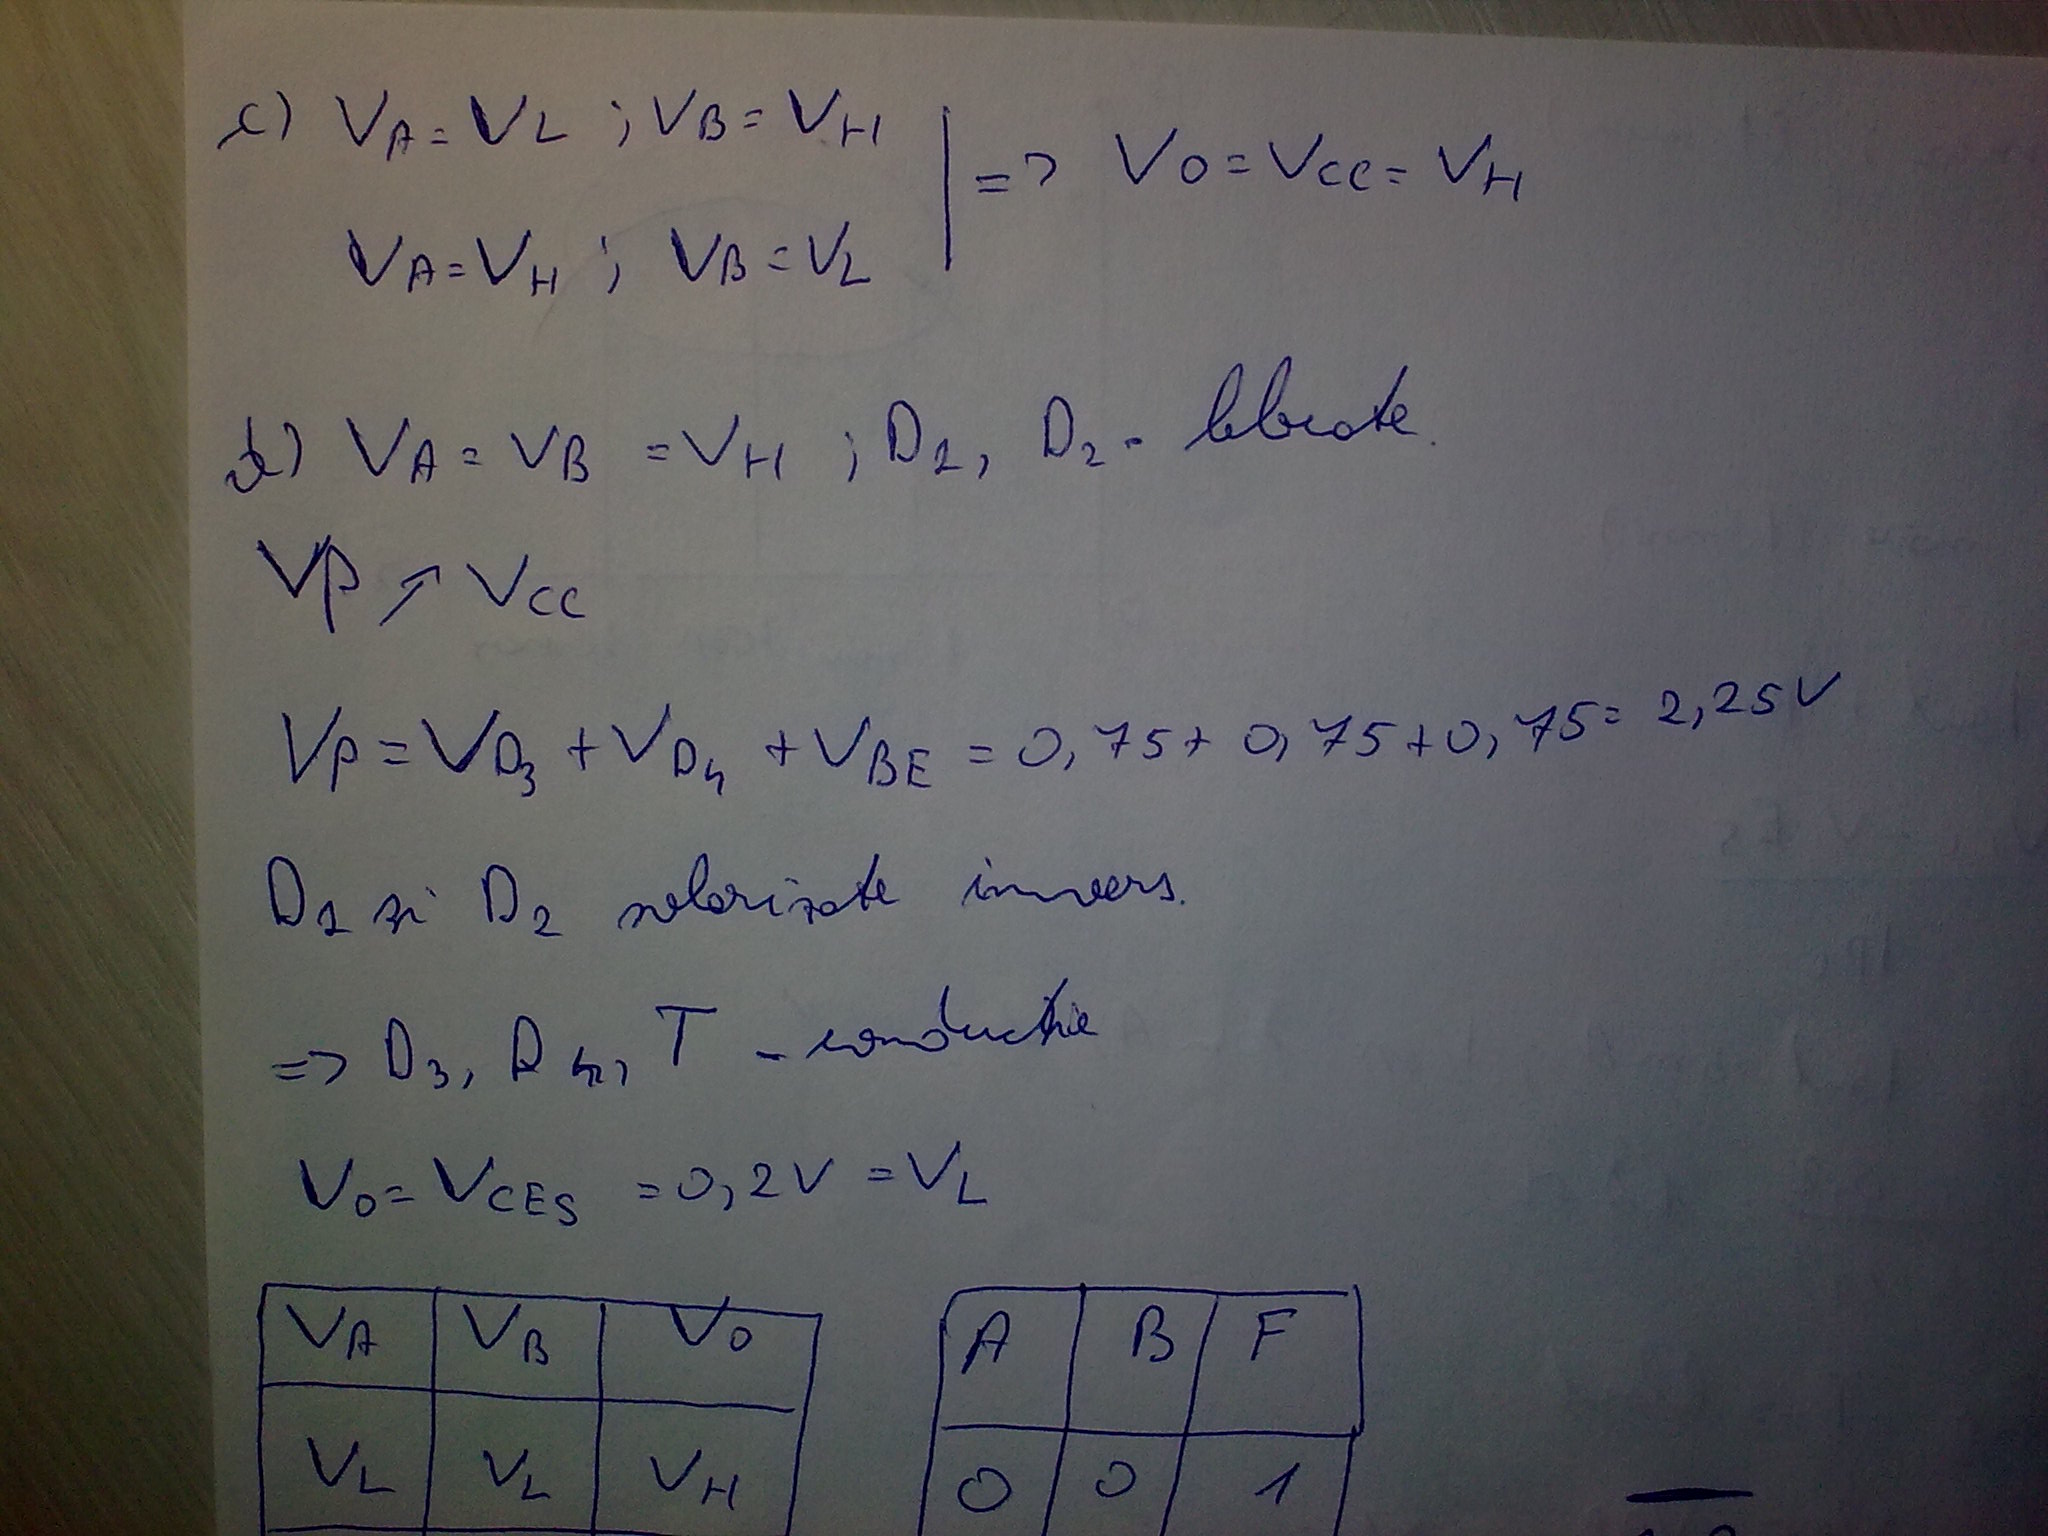 c) VA = VL ; VB = VH
VA = VH ; VB = VL
=> VO = VCC = VH
d) VA = VB = VH ; D1, D2 - blocate.
VP ↗ VCC
VP = VD3 + VD4 + VBE = 0,75 + 0,75 + 0,75 = 2,25V
D1 și D2 polarizate invers.
=> D3, D4, T - conducție
VO = VCES = 0,2V = VL
VA VB VO
VL VL VH
A B F
0 0 1